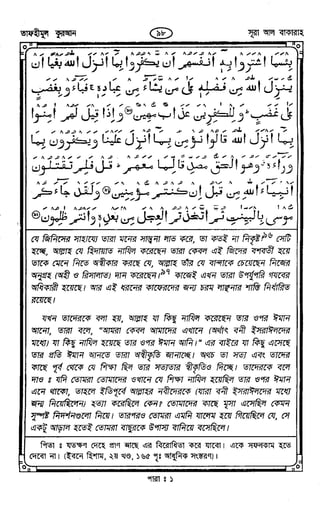 তাফহীমুল কুরআন
৯৮
সূরা আল বাকারাহ
بِئْسَمَا اشْتَرَوْا بِهٖٓ اَنْفُسَهُمْ اَنْ يَّكْفُرُوْا بِمَآ اَنْزَلَ اللهُ بَغْيًا اَنْ
يُّنَزِّلَ اللهُ مِنْ فَضْلِهٖ عَلٰى مَنْ يَّشَآءُ مِنْ عِبَادِهٖ ۚ فَبَآءُوْ بِغَضَبٍ
عَلٰى غَضَبٍ ۚ وَلِلْكٰفِرِيْنَ عَذَابٌ مُّهِيْنٌ ۝ وَاِذَا قِيْلَ لَهُمْ اٰمِنُوْا
بِمَآ اَنْزَلَ اللهُ قَالُوْا نُؤْمِنُ بِمَآ اُنْزِلَ عَلَيْنَا وَيَكْفُرُوْنَ بِمَا
وَرَآءَهٗ ۗ وَهُوَ الْحَقُّ مُصَدِّقًا لِّمَا مَعَهُمْ ۗ قُلْ فَلِمَ تَقْتُلُوْنَ
اَنْۢبِيَآءَ اللهِ مِنْ قَبْلُ اِنْ كُنْتُمْ مُّؤْمِنِيْنَ ۝ وَلَقَدْ جَآءَكُمْ
مُّوْسٰى بِالْبَيِّنٰتِ ثُمَّ اتَّخَذْتُمُ الْعِجْلَ مِنْۢ بَعْدِهٖ وَاَنْتُمْ ظٰلِمُوْنَ ۝
যে জিনিসের সাহায্যে তারা মনের সান্ত্বনা লাভ করে, তা কতই না নিকৃষ্ট! সেটি
হচ্ছে, আল্লাহ যে হিদায়াত নাযিল করেছেন তারা কেবল এই জিদের বশবর্তী হয়ে
তাকে মেনে নিতে অস্বীকার করছে যে, আল্লাহ তাঁর যে বান্দাকে চেয়েছেন নিজের
অনুগ্রহ (অহী ও রিসালাত) দান করেছেন। কাজেই এখন তারা উপর্যুপরি গযবের
অধিকারী হয়েছে। আর এই ধরনের কাফেরদের জন্য চরম লাঞ্ছনার শাস্তি নির্ধারিত
রয়েছে।
যখন তাদেরকে বলা হয়, আল্লাহ যা কিছু নাযিল করেছেন তার ওপর ঈমান
আনো, তারা বলে, "আমরা কেবল আমাদের এখানে (অর্থাৎ বনী ইসরাঈলদের
মধ্যে) যা কিছু নাযিল হয়েছে তার ওপর ঈমান আনি।" এর বাইরে যা কিছু এসেছে
তার প্রতি ঈমান আনতে তারা অস্বীকৃতি জানাচ্ছে। অথচ তা সত্য এবং তাদের
কাছে পূর্ব থেকে যে শিক্ষা ছিল তার সত্যতার স্বীকৃতিও দিচ্ছে। তাদেরকে বলে
দাও ঃ যদি তোমরা তোমাদের ওখানে যে শিক্ষা নাযিল হয়েছিল তার ওপর ঈমান
এনে থাকো, তাহলে ইতিপূর্বে আল্লাহর নবীদেরকে (যারা বনী ইসরাঈলদের মধ্যে
জন্ম নিয়েছিলেন) হত্যা করেছিলে কেন? তোমাদের কাছে মূসা এসেছিল কেমন
সুস্পষ্ট নিদর্শনগুলো নিয়ে। তারপরও তোমরা এমনি যালেম হয়ে গিয়েছিলে যে, সে
একটু আড়াল হতেই তোমরা বাছুরকে উপাস্য বানিয়ে বসেছিলে।
শিক্ষা ঃ যতক্ষণ দেহে প্রাণ আছে এর বিরোধিতা করে যাবো। একে সফলকাম হতে
দেবো না। (ইবনে হিশাম, ২য় খণ্ড, ১৬৫ পৃঃ আধুনিক সংস্করণ)।
পারা ঃ ১